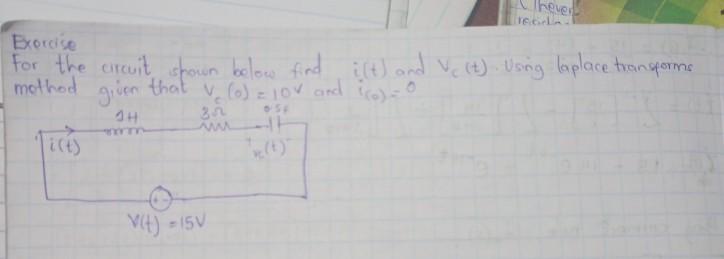 I never
Exercise
For the circuit shown below find i(t) and Vc(t). Using laplace transforms
method given that Vc(0) = 10V and i(0) = 0
1H 3Ω 0.5F
i(t) + Vc(t) -
+ -
V(t) = 15V